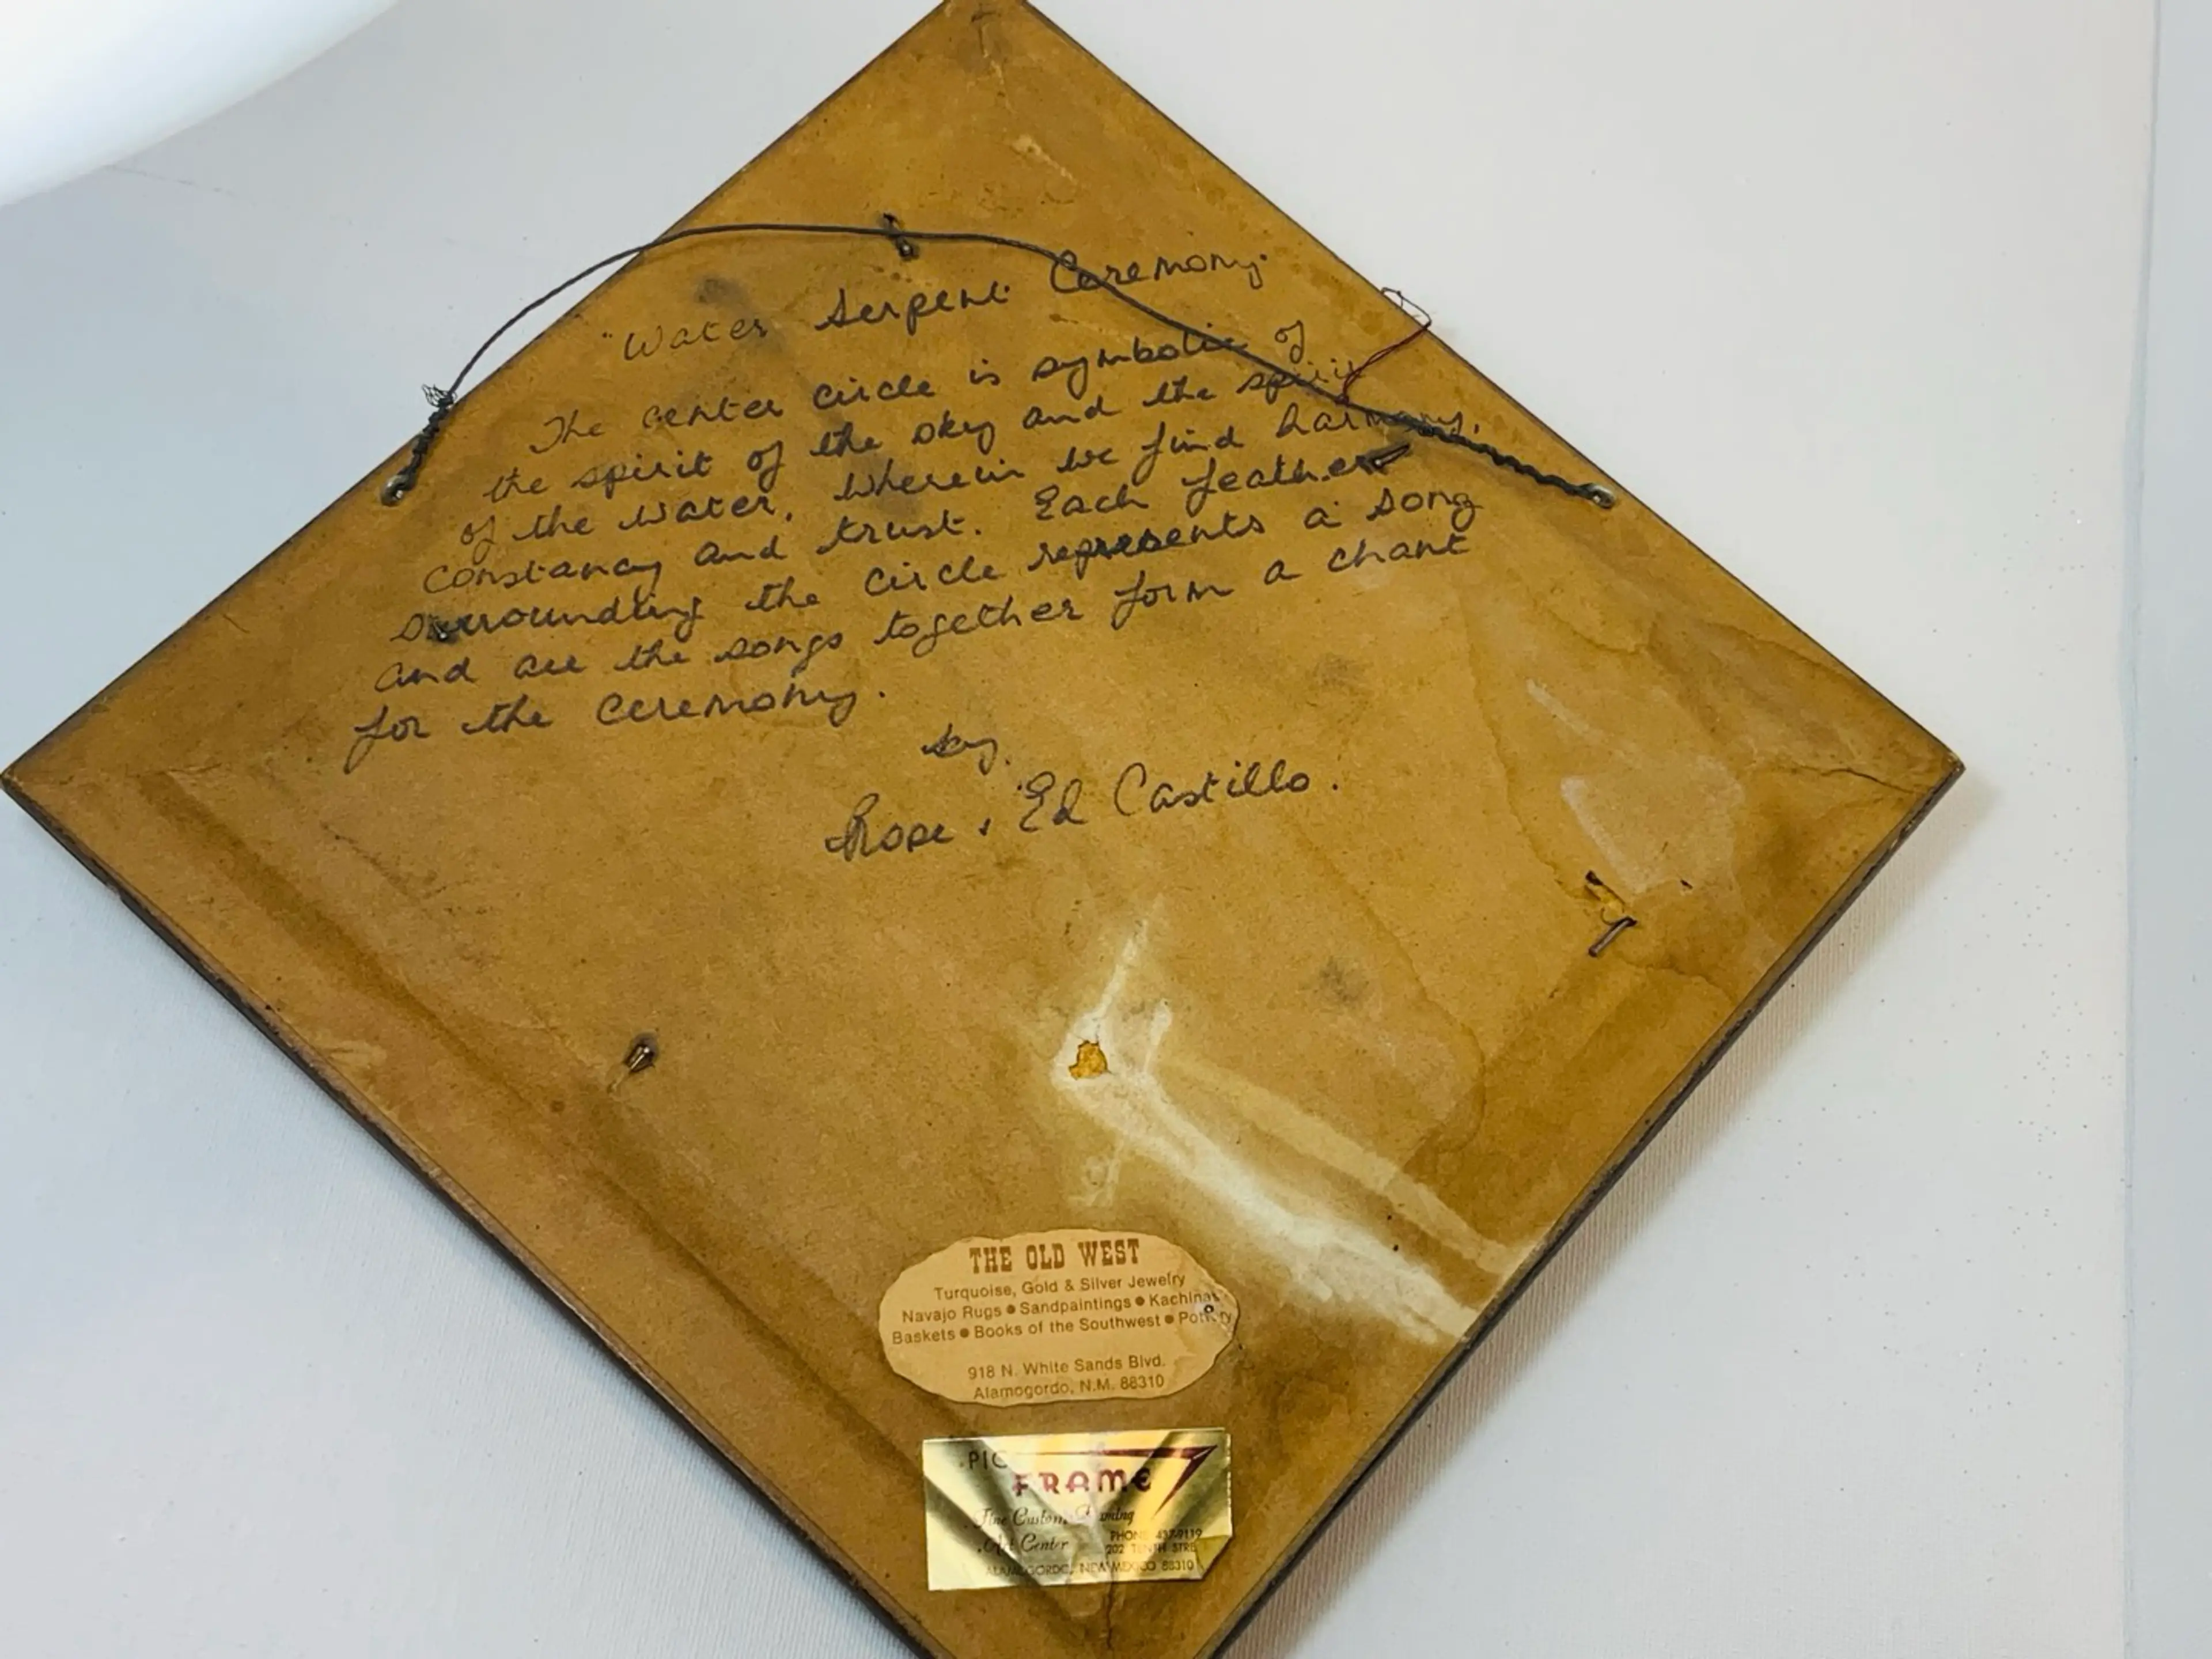 "Water Serpent Ceremony."
The center circle is symbolic of
the spirit of the sky and the spirit
of the water, wherein we find harmony,
constancy and trust. Each feather
surrounding the circle represents a song
and all the songs together form a chant
for the ceremony.
by.
Rose & Ed Castillo.
THE OLD WEST
Turquoise, Gold & Silver Jewelry
Navajo Rugs ● Sandpaintings ● Kachinas
Baskets ● Books of the Southwest ● Pottery
918 N. White Sands Blvd.
Alamogordo, N.M. 88310
FRAME
Fine Custom Framing
Art Center
PHONE 437-9119
202 TENTH STRE
ALAMOGORDO, NEW MEXICO 88310